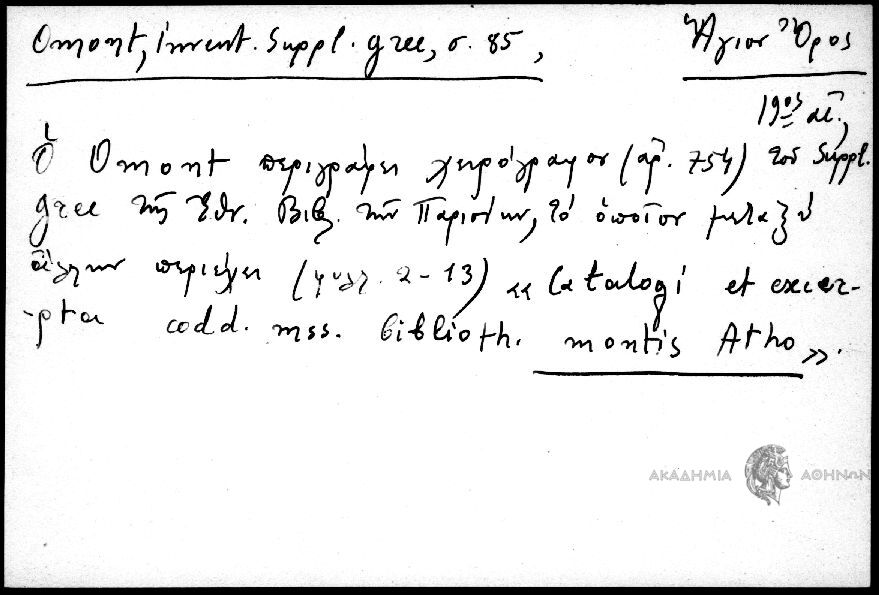 Omont, Invent. Suppl. grec, σ. 85, Ἅγιον Ὄρος
19ος αἰ.,
Ὁ Omont περιγράφει χειρόγραφον (ἀρ. 754) τοῦ Suppl.
grec τῆς Ἐθν. Βιβλ. τῶν Παρισίων, τὸ ὁποῖον μεταξὺ
ἄλλων περιέχει (φυλλ. 2-13) «Catalogi et excer-
-pta codd. mss. biblioth. montis Atho».
ΑΚΑΔΗΜΙΑ ΑΘΗΝΩΝ